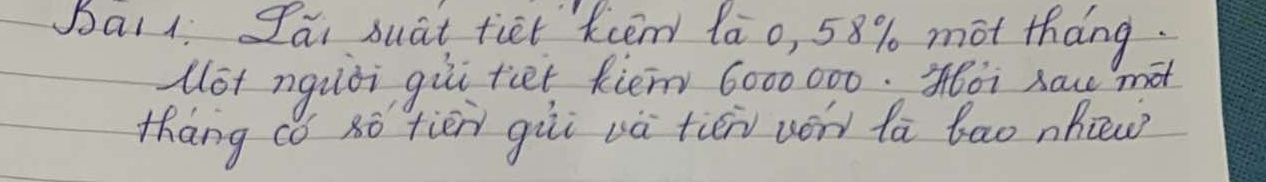 Bài 1. Lãi suất tiết kiệm là 0,58% một tháng.
Một người gửi tiết kiệm 6000 000. Hỏi sau một
tháng có số tiền gửi và tiền vốn là bao nhiêu